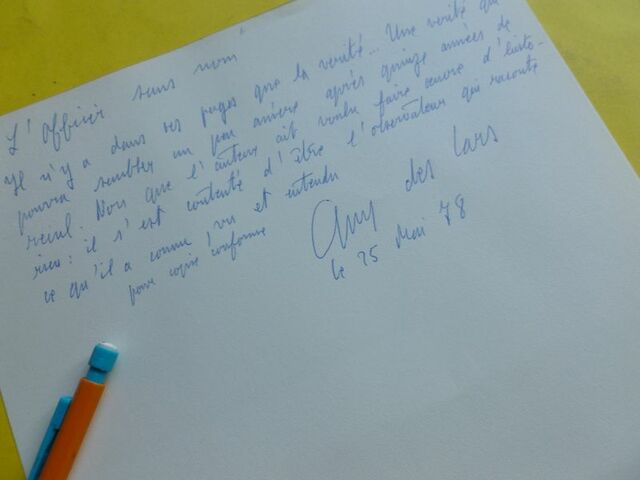 L'Officier sans nom
Il n'y a dans ces pages que la vérité... Une vérité qui
pourra sembler un peu amère après quinze années de
recul. Non que l'auteur ait voulu faire œuvre d'histo-
rien : il s'est contenté d'être l'observateur qui raconte
ce qu'il a connu, vu et entendu
pour copie conforme
Guy des Cars
le 25 Mai 78